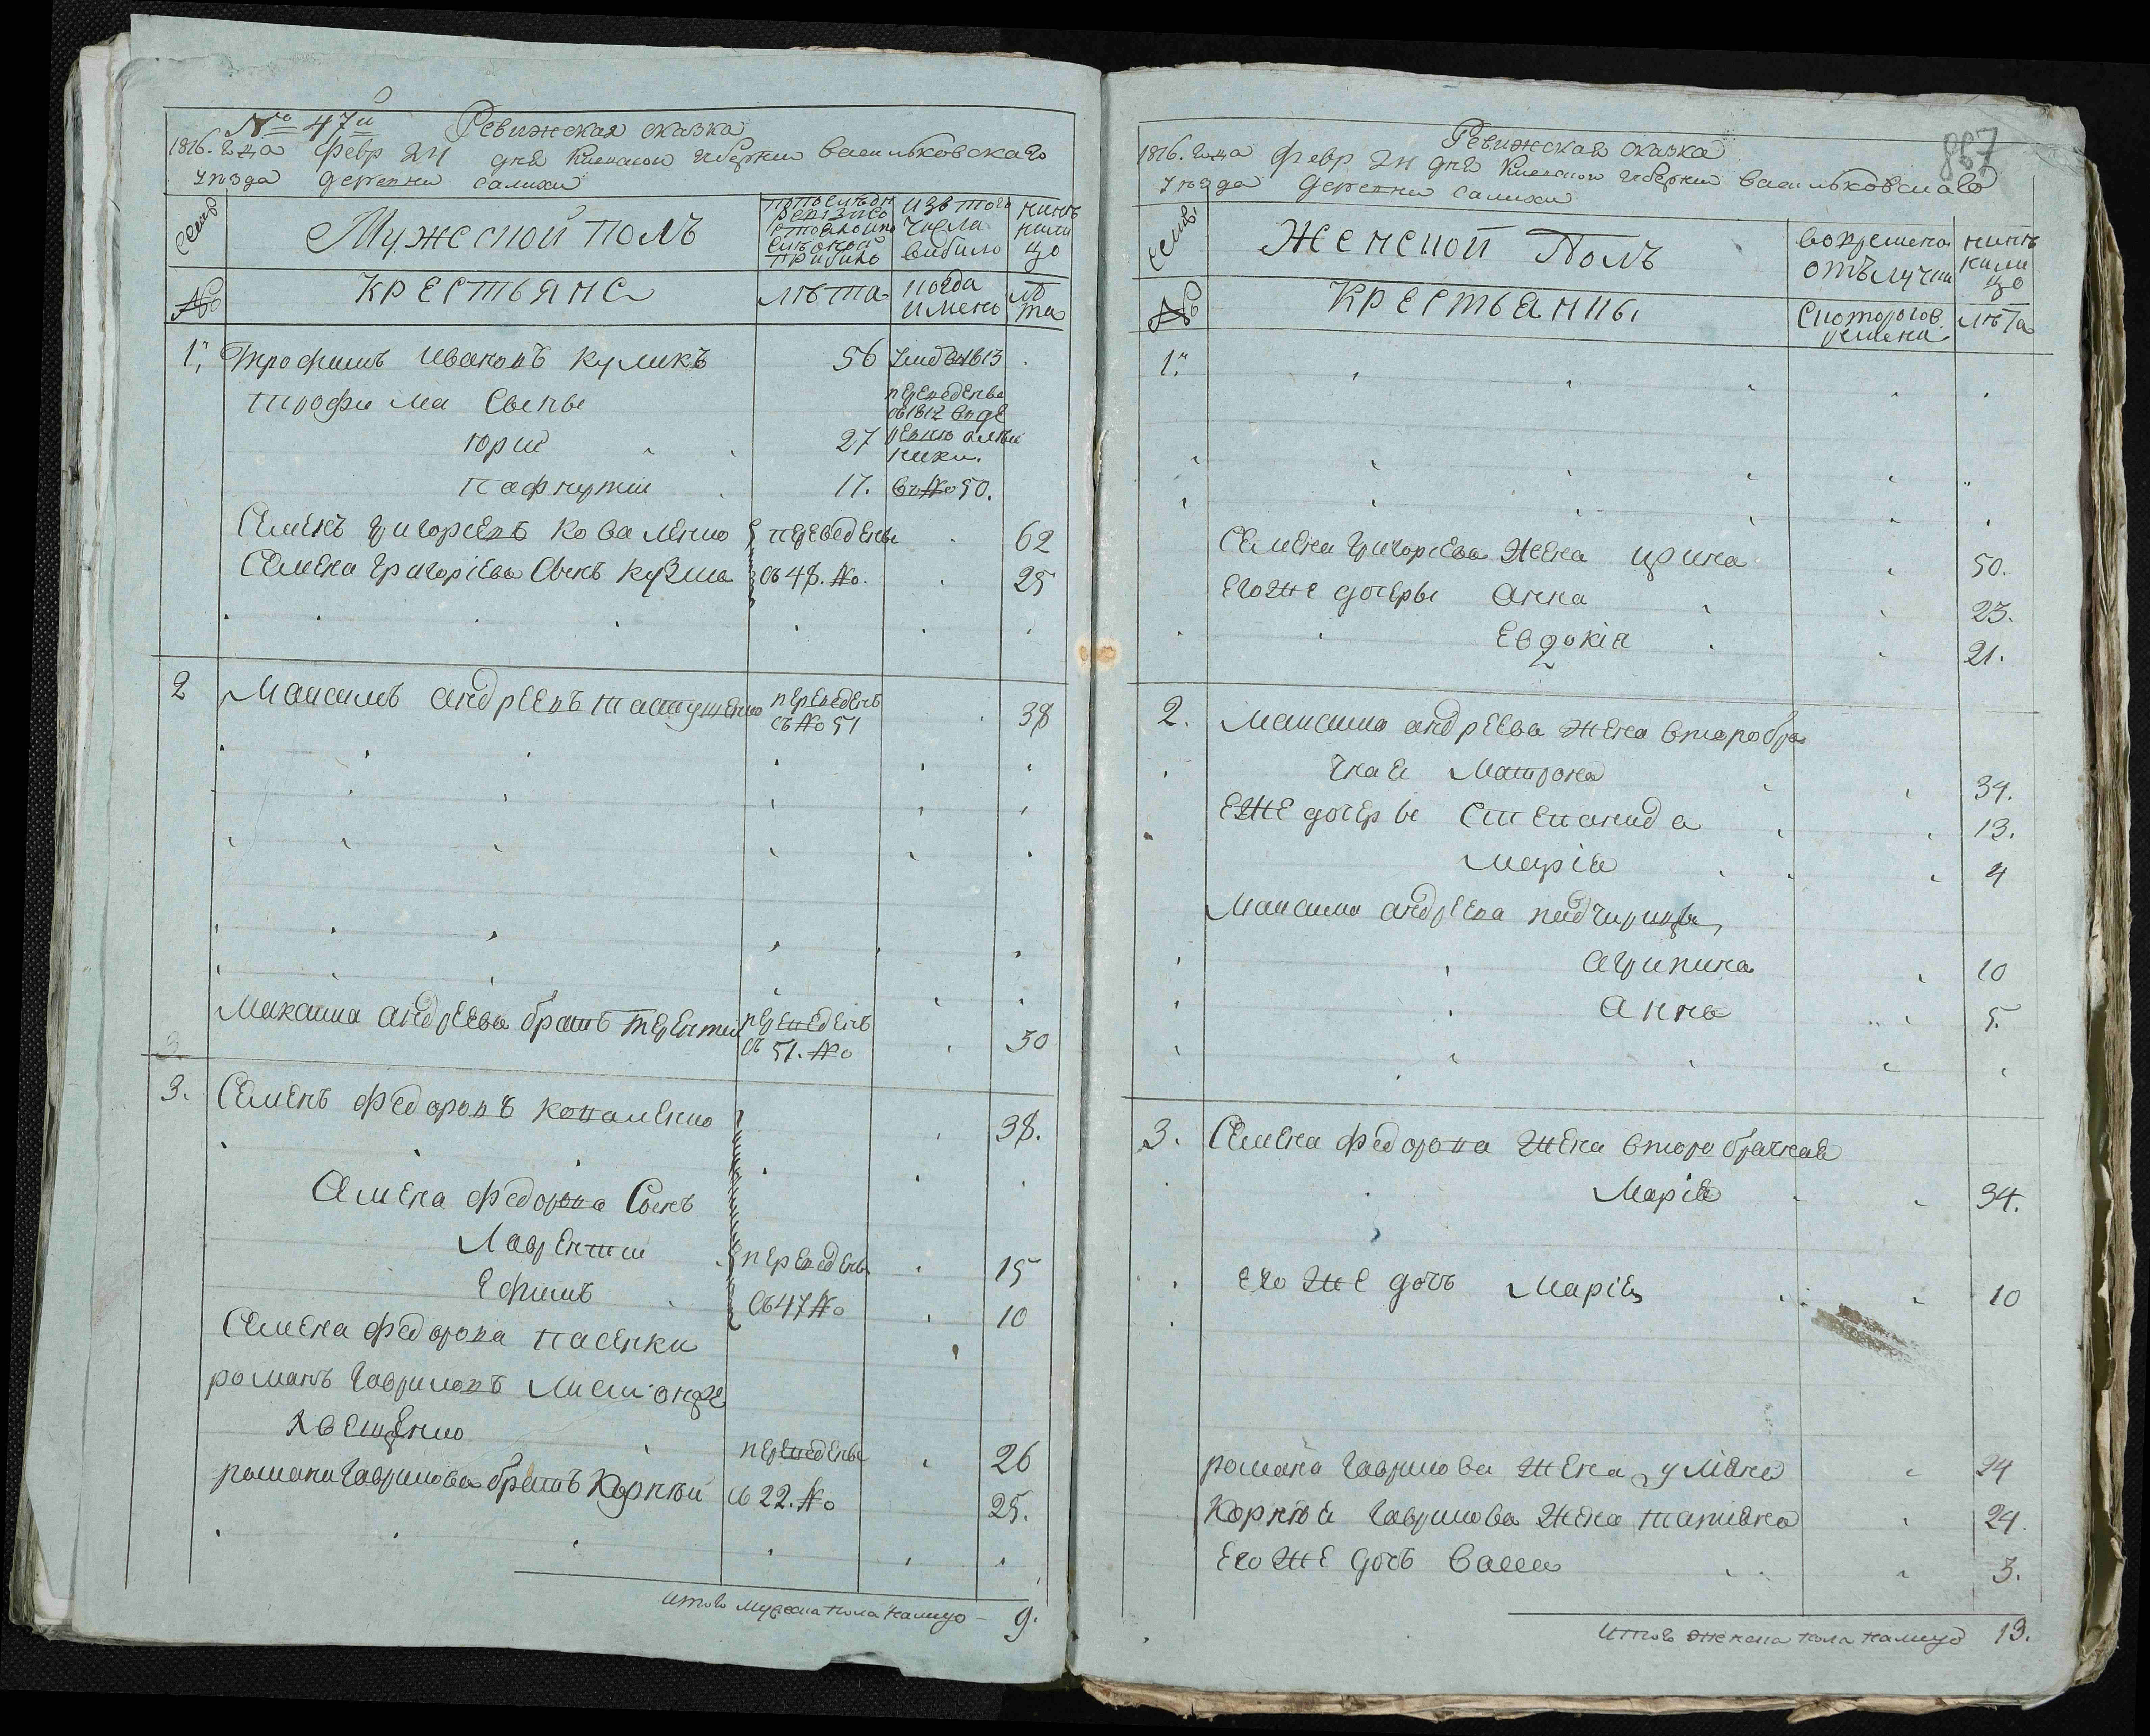 № 47й Ревижская сказка
1816. года февр 24 дня Киевской губернии васильковскаго
уезда деревни салихи
семьи
Мужеской полъ
по последней ревизии состояло и после оной прибило
изъ того числа вибило
нине на лицо
№
крестьяне
лѣта
когда имено
лѣта
1. Трофимъ Ивановъ куликъ 56 умеръ 1813
трофима Сыны
юрий 27
переведены въ 1812 в деревню олейники.
пафнутий 17. въ № 50.
Семенъ григориевъ коваленко переведены 62
Семена Григорiева Сынъ кузма съ 48. № 25
2 Максимъ андреевъ переведенъ съ № 51 38
Максима андреева братъ терентий переведенъ съ 51. № 30
3. Семенъ федоровъ коваленко 38.
Семена федорова Сынъ
Лаврентий переведены 15
Ефимъ съ 47 № 10
Семена федорова пасенки
романъ гавриловъ
переведены 26
романа гаврилова братъ Корнѣй съ 22. № 25.
итого мужеска пола налицо – 9.
887
Ревижская сказка
1816. года февр 24 дня Киевской губернии васильковскаго
уезда деревни салихи
семьи
Женской Полъ
во временной отълучки
нине на лицо
№
Крестьянки
Скоторогов времени
лѣта
1.
Семена григорiева жена ирина 50.
Егоже дочеры Анна 23.
Евдокiя 21.
2. Максима андреева жена второбра
чная Матрона 34.
Еже дочеры Степанида 13.
Марiя 4
Максима андреева падчирицы
Агрипина 10
Анна 5.
3. Семена федорова жена второбрачная
Марiя 34.
его же дочъ Марiя 10
романа гаврилова жена улiяна 24
Корнѣя гаврилова жена татiяна 24.
Егоже дочъ Васса 3.
итого женска пола налицо 13.